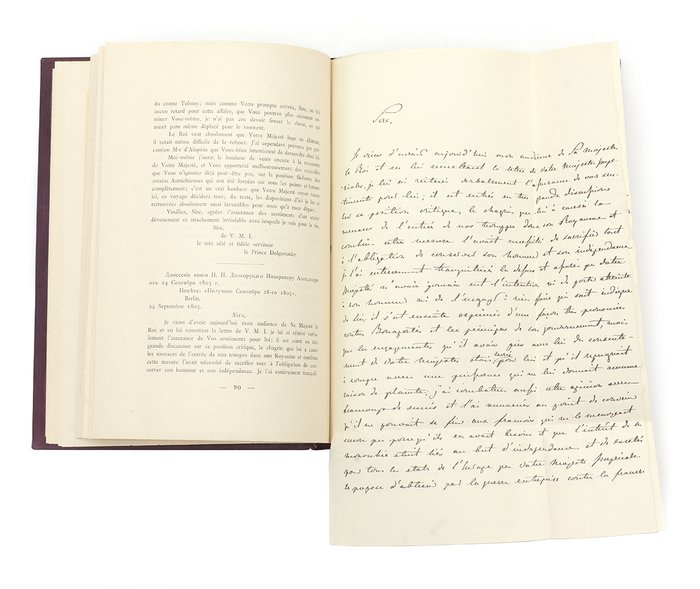 du comte Tolstoy; mais comme Votre prompte arrivée, Sire, ne lais
aucun retard pour cette affaire, que Vous pourrez plus aisément ter-
miner Vous-même, je n'ai pas cru devoir forcer la chose, et qui
aurait paru même déplacé pour le moment.
Le Roi veut absolument que Votre Majesté loge au château,
il serait même difficile de le refuser. J'ai cependant prévenu par pré-
caution M-r d'Alopéus que Vous étiez intentionné de descendre chez
Moi-même j'aurai le bonheur de venir encore à la rencontre
de Votre Majesté, et Vous apporterai malheureusement des nouvelles
que Vous n'ignorez déjà peut-être pas, sur la position fâcheuse des
armées Autrichiennes qui ont été forcées sur tous les points et battues
complètement; c'est un vrai bonheur que Votre Majesté soyez venue
ici, ce voyage décidera tout; du reste, les dispositions d'ici je les ai
retrouvées absolument aussi favorables pour nous qu'à mon départ.
Veuillez, Sire, agréer l'assurance des sentiments d'un entier
dévouement et attachement inviolable avec lesquels je suis pour la vie
Sire,
de V. M. I.
le très zélé et fidèle serviteur
le Prince Dolgorouky.
Донесеніе князя П. П. Долгорукаго Императору Александру
отъ 24 Сентября 1805 г.
Помѣта: «Получено Сентября 28-го 1805».
Berlin,
24 Septembre 1805.
Sire,
Je viens d'avoir aujourd'hui mon audience de Sa Majesté le
Roi et en lui remettant la lettre de V. M. I. je lui ai réitéré verba-
lement l'assurance de Vos sentiments pour lui; il est entré en très
grande discussion sur sa position critique, le chagrin que lui a causé
les menaces de l'entrée de nos troupes dans son Royaume et combien
cette mesure l'avait nécessité de sacrifier tout à l'obligation de con-
server son honneur et son indépendance. Je l'ai entièrement tranquil-
— 90 —
Sire,
Je viens d'avoir aujourd'hui mon audience de Sa Majesté
le Roi et en lui remettant la lettre de Votre Majesté Impé-
riale, je lui ai réitéré verbalement l'assurance de vos sen-
timents pour lui; il est entré en très grande discussion
sur sa position critique, le chagrin que lui a causé la
menace de l'entrée de nos troupes dans son Royaume et
combien cette mesure l'avait nécessité de sacrifier tout
à l'obligation de conserver son honneur et son indépendance
je l'ai entièrement tranquillisé là dessus et assuré que Votre
Majesté n'avait jamais l'intention ni de porter atteinte
à son honneur ni de l'engager à rien faire qui soit indigne
de lui, il s'est ensuite exprimé d'une façon très prononcée
contre Bonaparte et les principes de son gouvernement, mais
que les engagements qu'il avait pris avec lui du consente-
ment de Votre Majesté, étaient sacrés pour lui et qu'il répugnait
à rompre avec une puissance qui ne lui donnait aucune
raison de plainte, j'ai combattu aussi cette opinion avec
beaucoup de succès et l'ai amené au point de convenir
qu'il ne pouvait se fier aux français qui ne le menageait
encore que parce qu'ils en avait besoin et que l'intérêt de sa
monarchie étant lié au but d'indépendance et de sureté
pour tous les états de l'Europe que Votre Majesté Impériale
se propose d'obtenir par la guerre entreprise contre la france